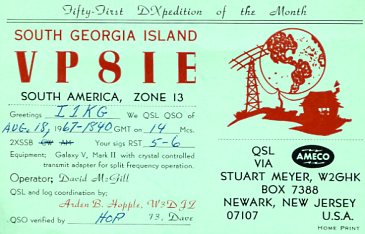 Fifty-First DXpedition of the Month
SOUTH GEORGIA ISLAND
VP8IE
SOUTH AMERICA, ZONE 13
Greetings I1KG We QSL QSO of
AUG. 18, 1967-1840 GMT on 14 Mcs.
2XSSB CW AM Your sigs RST 5-6
Equipment: Galaxy V, Mark II with crystal controlled
transmit adapter for split frequency operation.
Operator: David McGill
QSL and log coordination by:
Arden B. Hopple, W3DJZ
QSO verified by HOP 73, Dave
AMECO
QSL
VIA
STUART MEYER, W2GHK
BOX 7388
NEWARK, NEW JERSEY
07107 U.S.A.
HOME PRINT